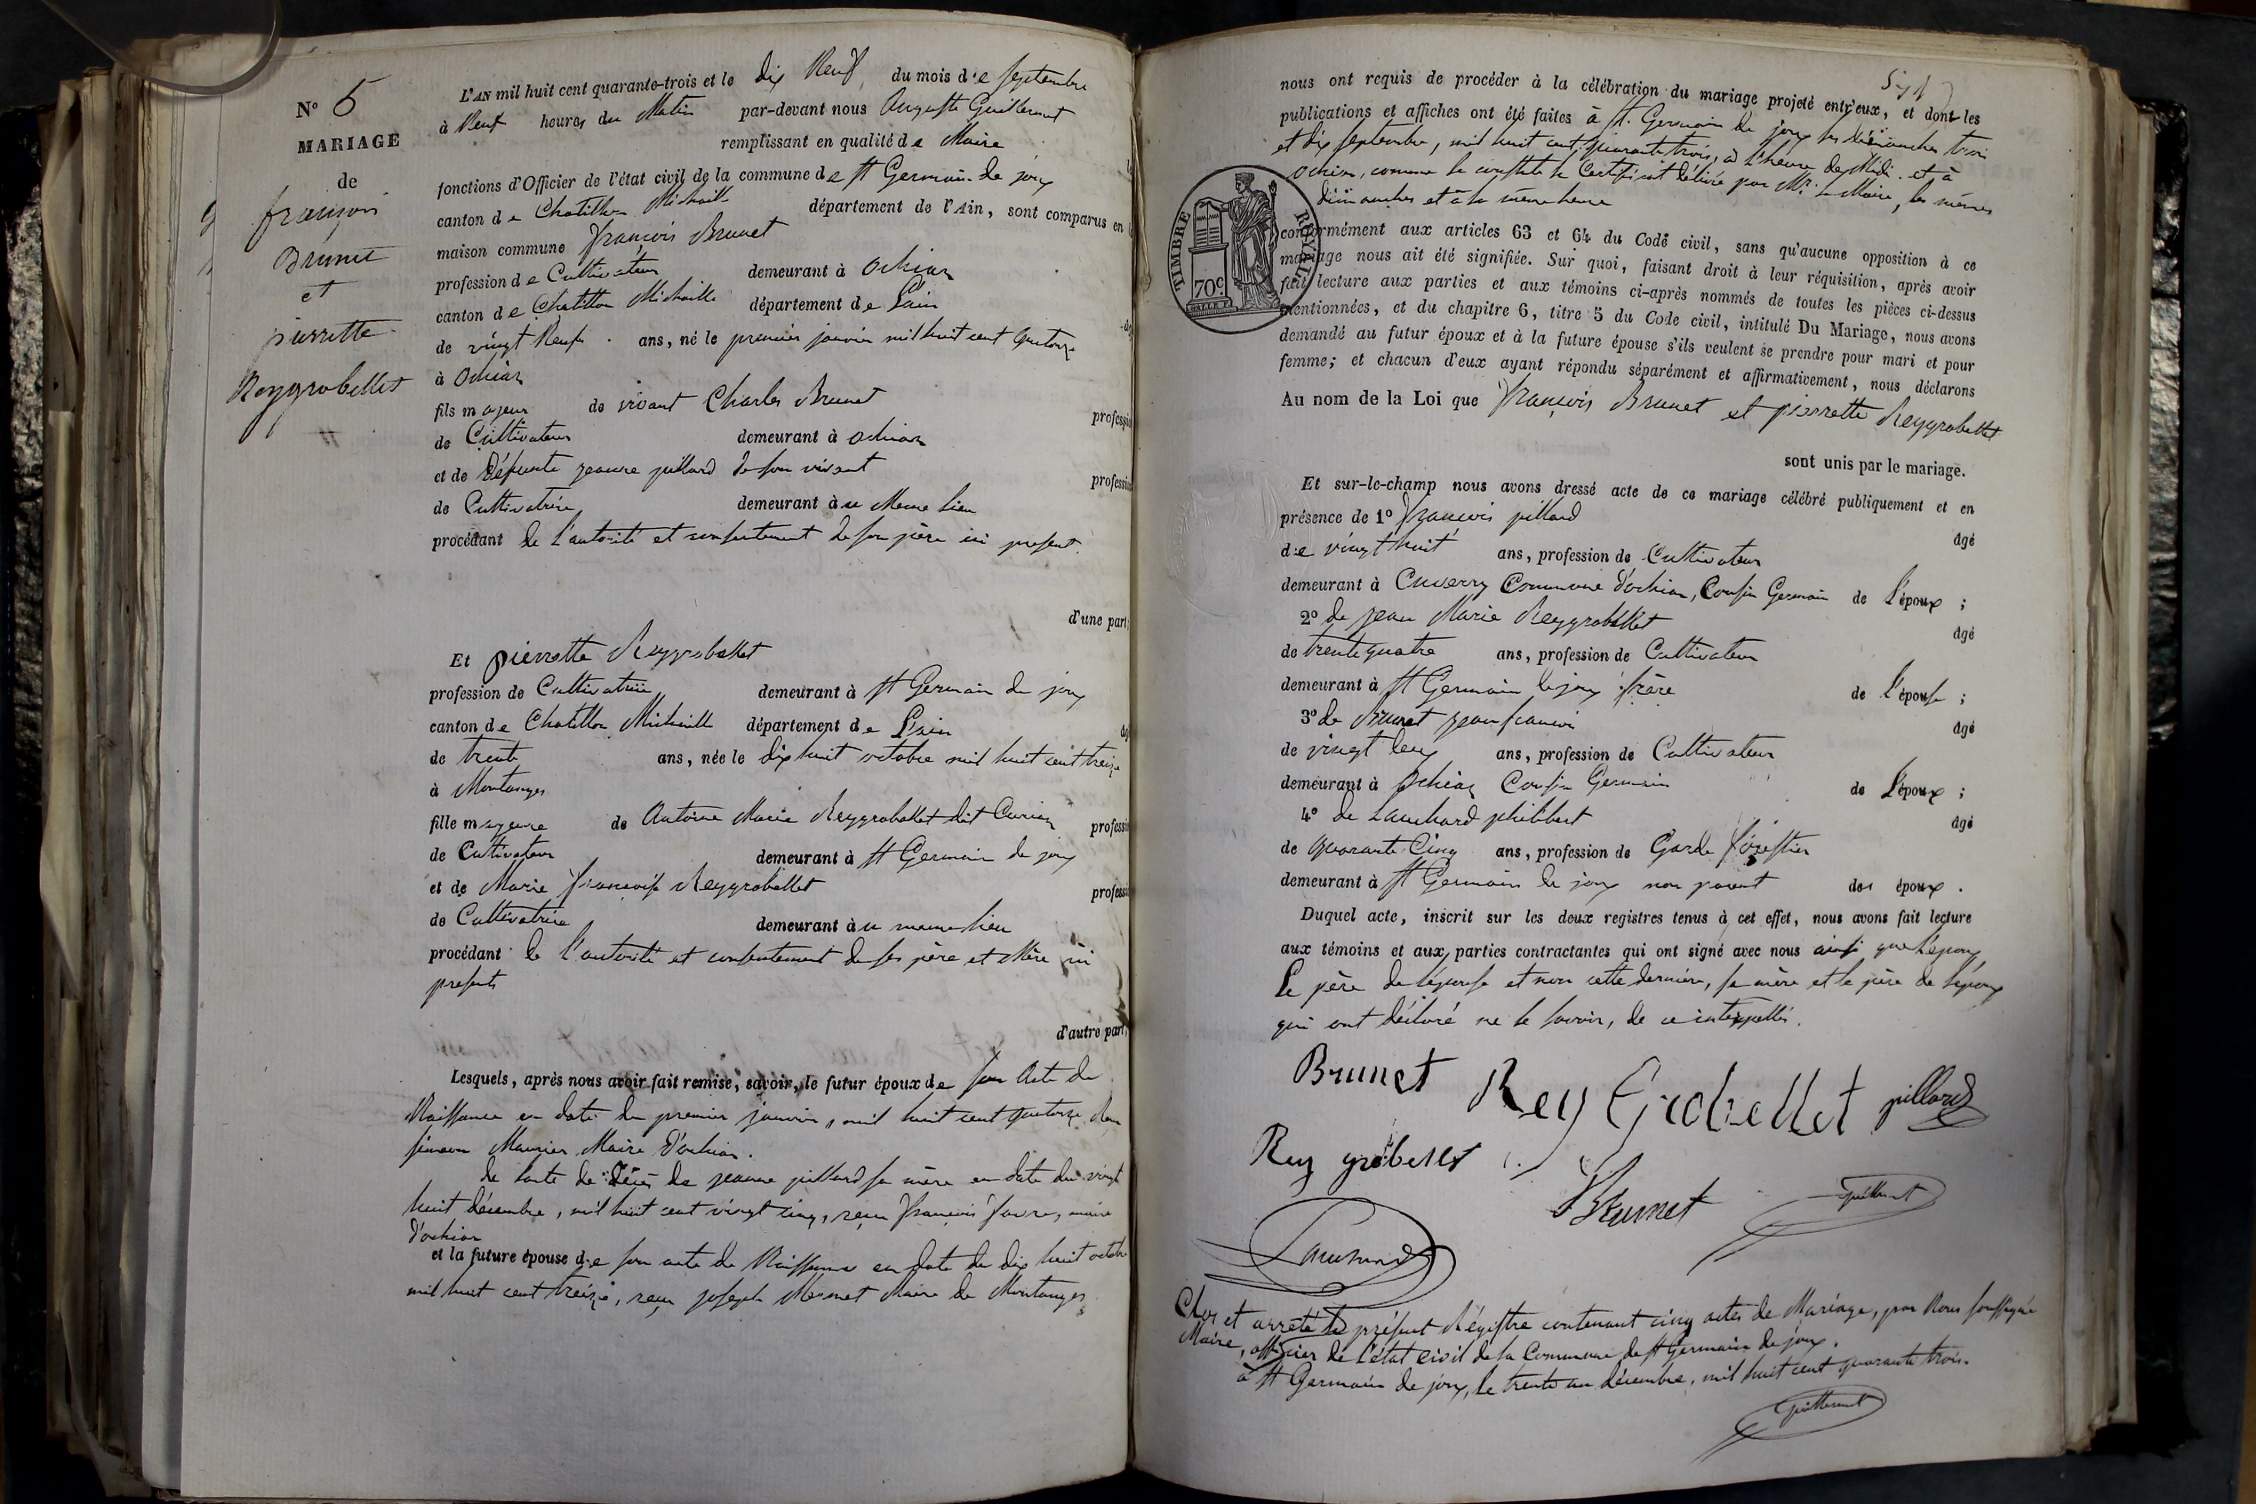 N° 5
MARIAGE
de
françois
Brunet
et
pierrette
Reygrobellet
L'AN mil huit cent quarante-trois et le dix Neuf du mois de septembre
à Neuf heures du Matin par-devant nous Auguste Guillermet
remplissant en qualité de Maire
fonctions d'Officier de l'état civil de la commune de St Germain de joux
canton de Chatillon Michaille département de l'Ain, sont comparus en
maison commune françois Brunet
profession de Cultivateur demeurant à Ochiaz
canton de Chatillon Michaille département de l'ain
de vingt Neuf ans, né le premier janvier mil huit cent quatorze
à Ochiaz
fils majeur de vivant Charles Brunet profession
de Cultivateur demeurant à ochiaz
et de défunte jeanne pillard de son vivant profession
de Cultivatrice demeurant au Meme lieu
procédant de l'autorité et consentement de son père ici present.
d'une part;
Et pierrette Reygrobellet
profession de Cultivatrice demeurant à St Germain de joux
canton de Chatillon Michaille département de l'ain
de trente ans, née le dix huit octobre mil huit cent treize
à Montanges
fille majeure de Antoine Marie Reygrobellet dit Curien profession
de Cultivateur demeurant à St Germain de joux
et de Marie françoise Reygrobellet profession
de Cultivatrice demeurant au meme lieu
procédant de l'autorité et consentement de ses père et Mère ici
presents
d'autre part;
Lesquels, après nous avoir fait remise, savoir, le futur époux de son Acte de
Naissance en date du premier janvier, mil huit cent quatorze
Maire d'ochiaz.
de l'acte de décès de jeanne pillard sa mère en date du vingt
huit décembre, mil huit cent vingt cinq, reçu françois favre, maire
d'ochiaz
et la future épouse de son acte de Naissance en date du dix huit octobre
mil huit cent treize, reçu joseph Mermet Maire de Montanges
nous ont requis de procéder à la célébration du mariage projeté entr'eux, et dont les
publications et affiches ont été faites à St. Germain de joux les dimanches trois
et dix septembre, mil huit cent quarante trois, à l'heure de Midi. et à
Ochiaz, comme le constate le Certificat délivré par Mr. le Maire, les memes
dimanches et à la même heure
TIMBRE ROYAL
70c.
conformément aux articles 63 et 64 du Code civil, sans qu'aucune opposition à ce
mariage nous ait été signifiée. Sur quoi, faisant droit à leur réquisition, après avoir
fait lecture aux parties et aux témoins ci-après nommés de toutes les pièces ci-dessus
mentionnées, et du chapitre 6, titre 5 du Code civil, intitulé Du Mariage, nous avons
demandé au futur époux et à la future épouse s'ils veulent se prendre pour mari et pour
femme; et chacun d'eux ayant répondu séparément et affirmativement, nous déclarons
Au nom de la Loi que françois Brunet et pierrette Reygrobellet
sont unis par le mariage.
Et sur-le-champ nous avons dressé acte de ce mariage célébré publiquement et en
présence de 1° françois pillard âgé
de vingt huit ans, profession de Cultivateur
demeurant à Cuvery Commune d'ochiaz, Cousin Germain de l'époux;
2° de jean Marie Reygrobellet âgé
de trente quatre ans, profession de Cultivateur
demeurant à St Germain de joux frère de l'épouse;
3° de Brunet jean françois âgé
de vingt deux ans, profession de Cultivateur
demeurant à Ochiaz Cousin Germain de l'époux;
4° de Lauchard philibert âgé
de quarante Cinq ans, profession de Garde forestier
demeurant à St Germain de joux non parent des époux.
Duquel acte, inscrit sur les deux registres tenus à cet effet, nous avons fait lecture
aux témoins et aux parties contractantes qui ont signé avec nous ainsi que l'époux
Le père de l'épouse et non cette dernière, sa mère et le père de l'époux
qui ont déclaré ne le savoir, de ce interpellés.
Brunet Rey Grobellet pillard
Rey grobellet
Brunet Guillermet
Lauchard
Clos et arrêté le présent Régistre contenant cinq actes de Mariage, par Nous soussigné
Maire, officier de l'état civil de la Commune de St Germain de joux.
à St Germain de joux, le trente un décembre, mil huit cent quarante trois.
Guillermet